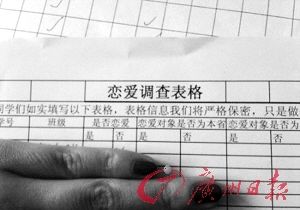 恋爱调查表格
同学们如实填写以下表格，表格信息我们将严格保密，只是做
学号 班级 是否恋爱 恋爱对象是否为本省 恋爱对象是否为本
是 否 是 否 是 否
廣州日报